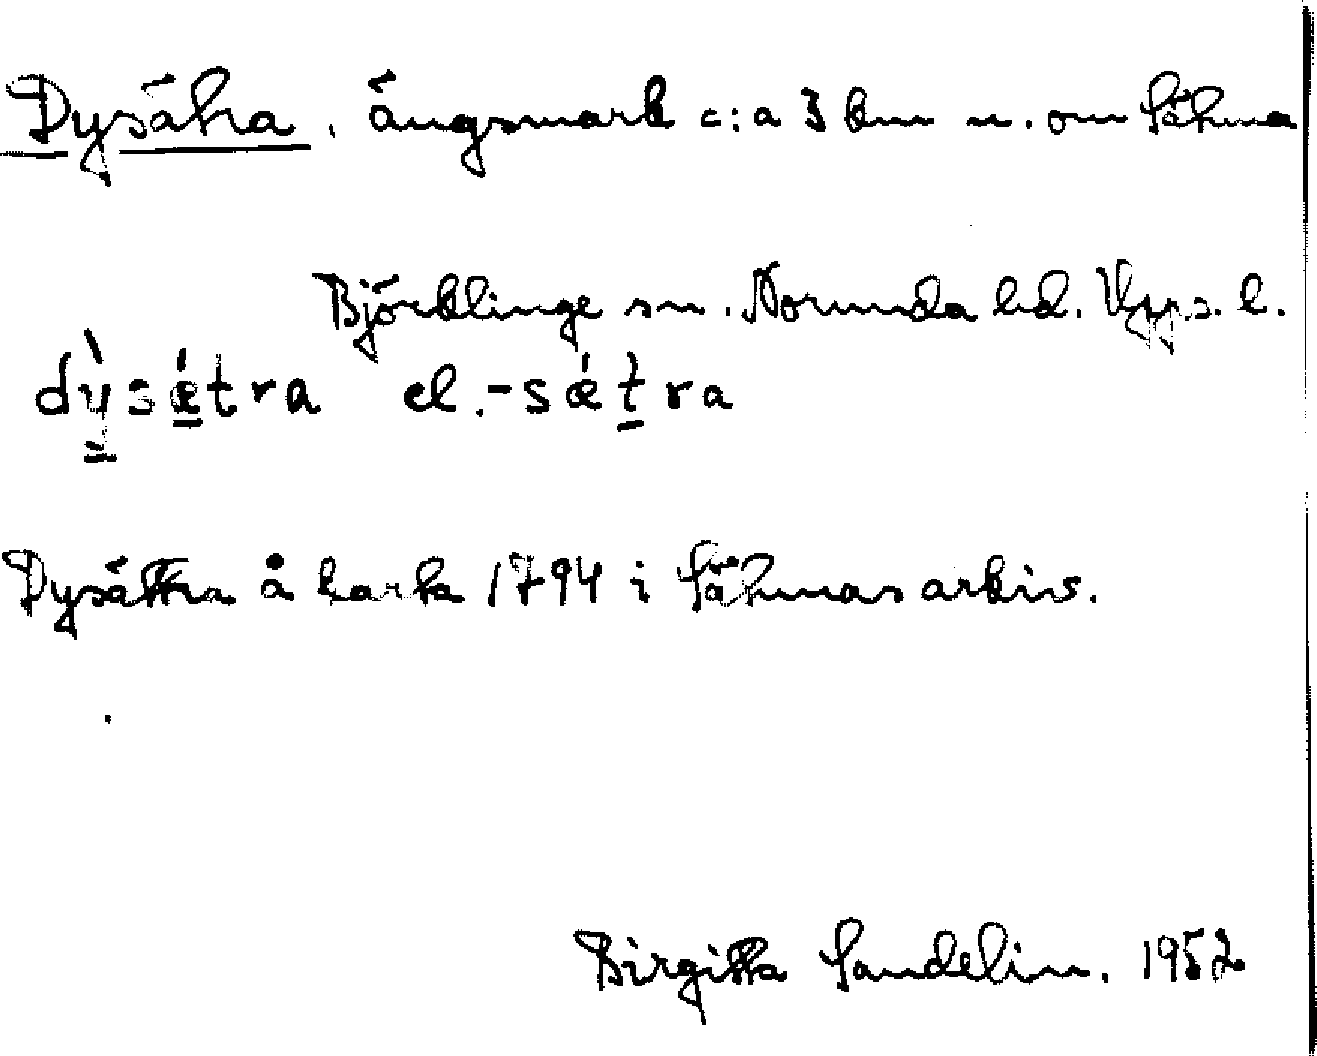 Dysätra, ängsmark c:a 3 km n. om Sätuna
Björklinge sn. Norunda hd. Upps. l.
dỳsǽtra el. -sǽtra
Dysättra å karta 1794 i Sätunas arkiv.
Birgitta Sandelin. 1952